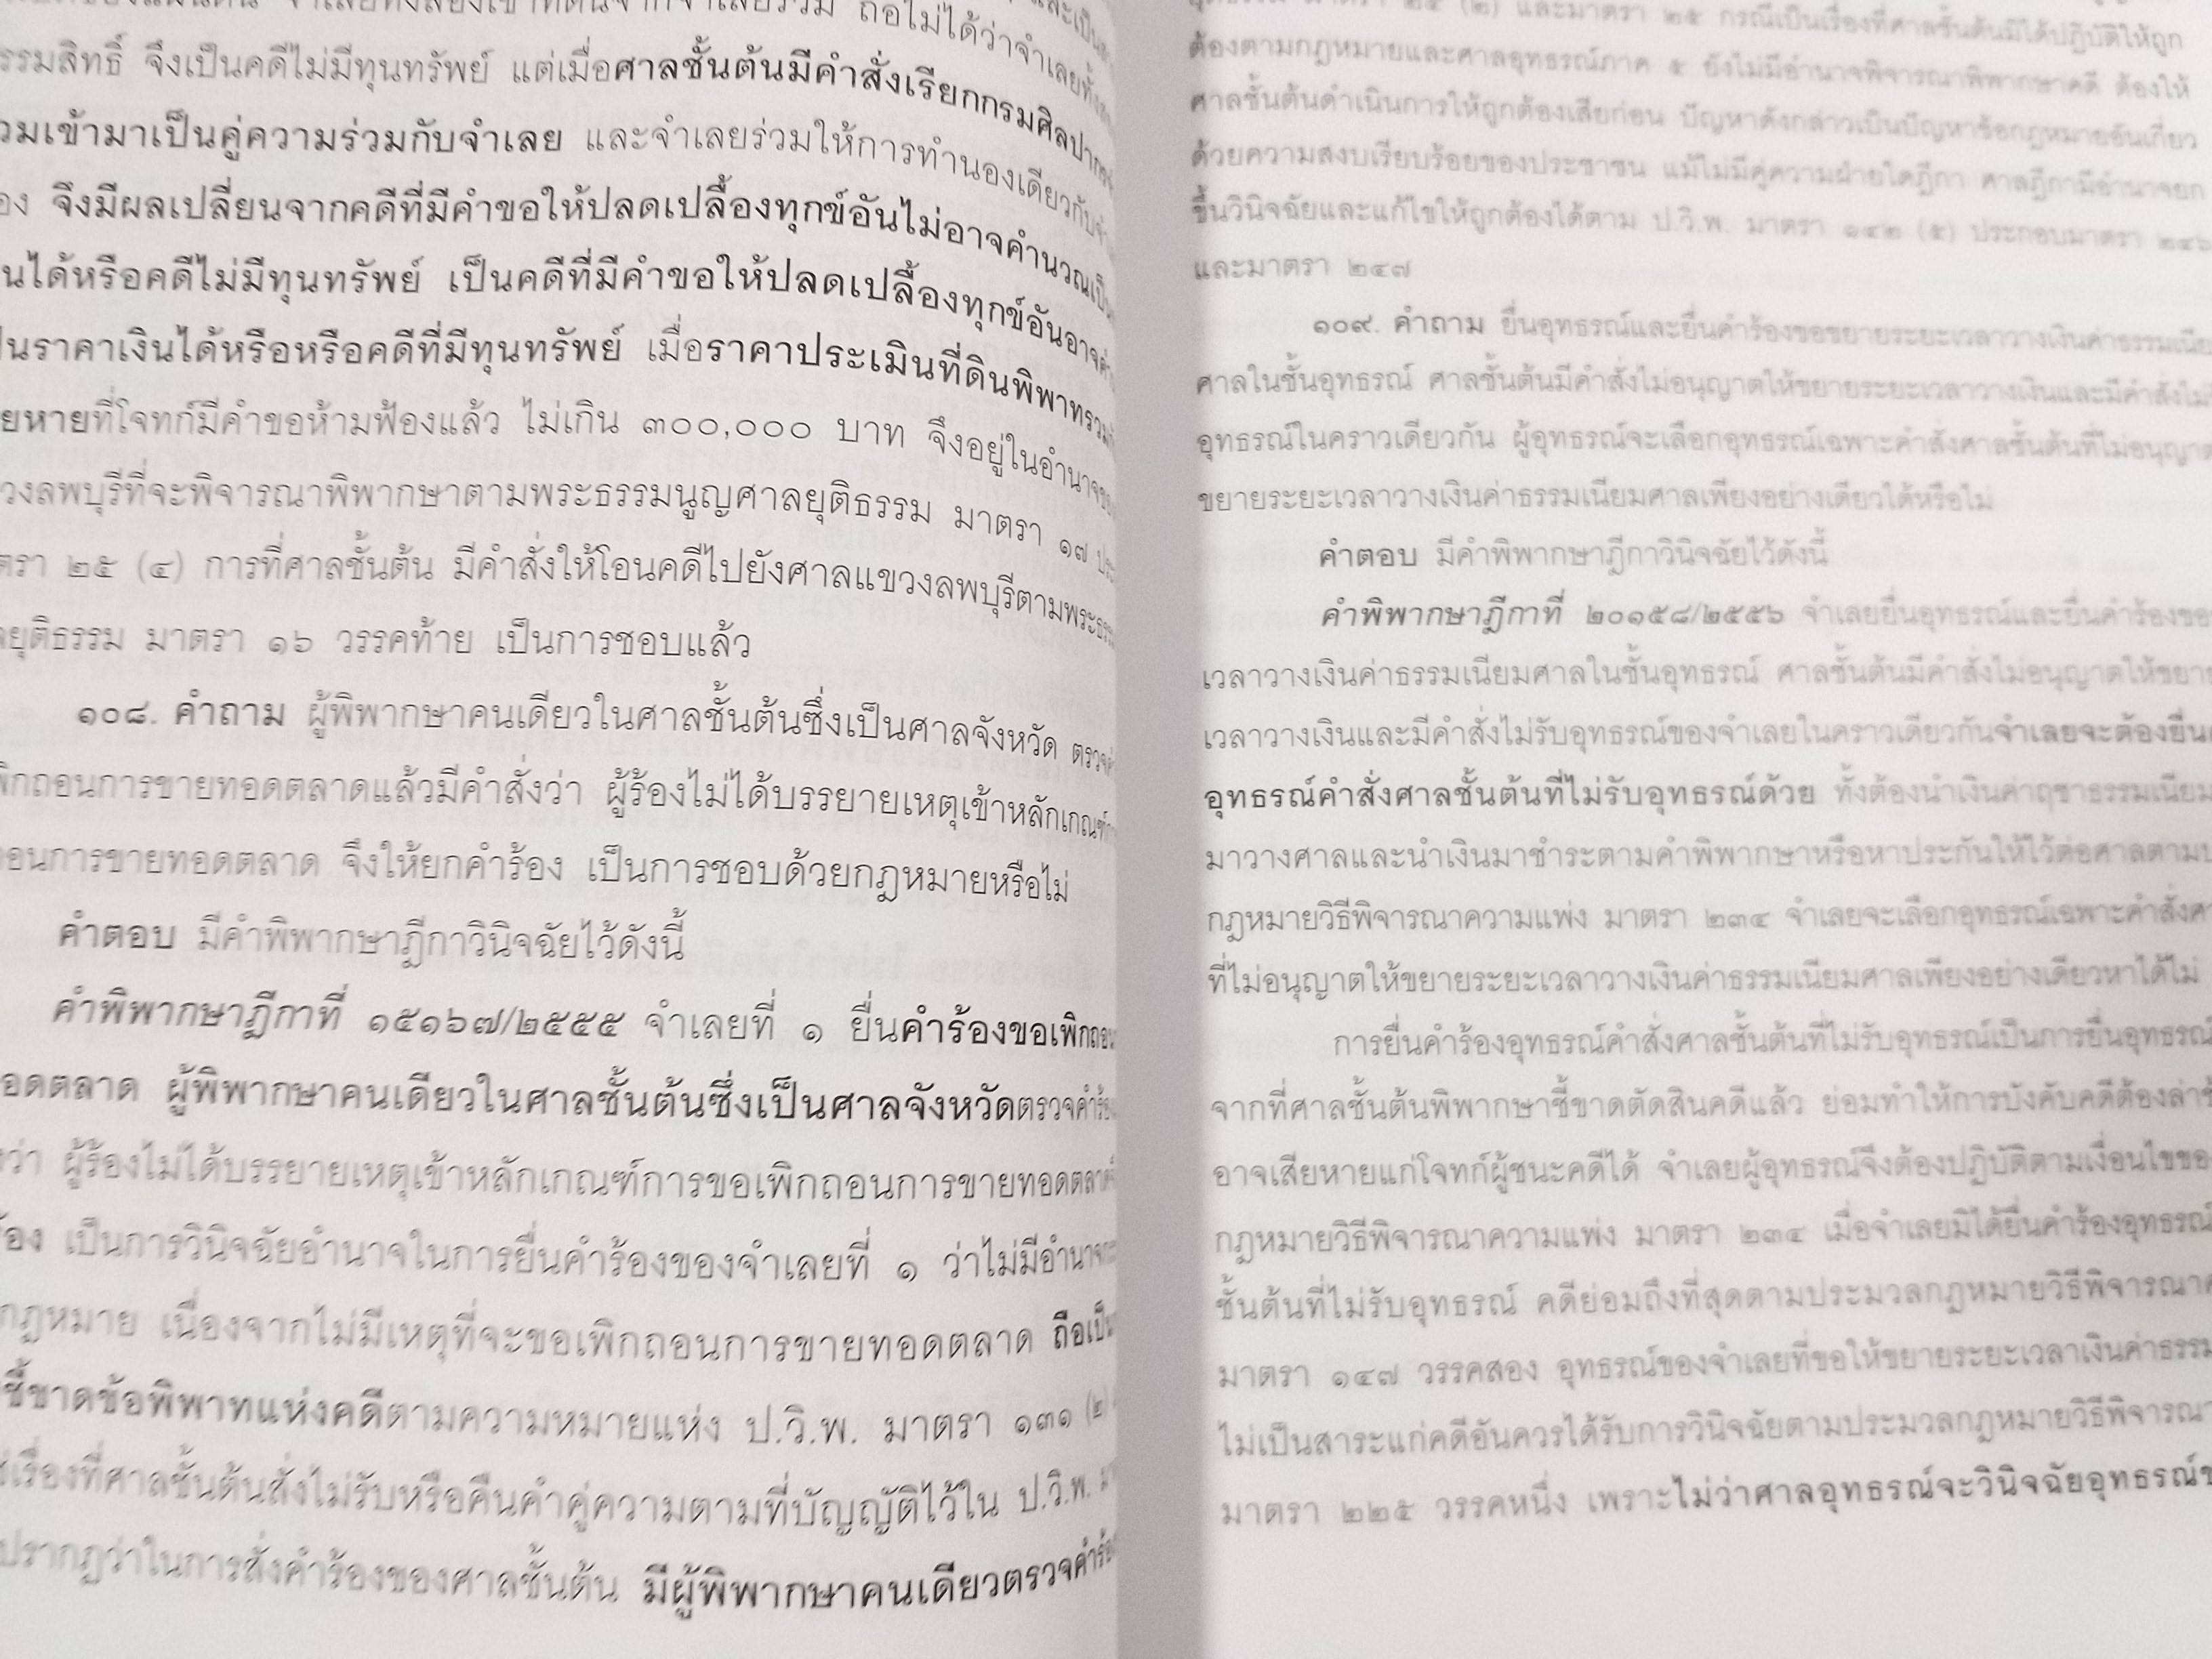 รรมสิทธิ์ จึงเป็นคดีไม่มีทุนทรัพย์ แต่เมื่อศาลชั้นต้นมีคำสั่งเรียกกรมศิลปากร
วมเข้ามาเป็นคู่ความร่วมกับจำเลย และจำเลยร่วมให้การทำนองเดียวกับ
อง จึงมีผลเปลี่ยนจากคดีที่มีคำขอให้ปลดเปลื้องทุกข์อันไม่อาจคำนวณเป็น
นได้หรือคดีไม่มีทุนทรัพย์ เป็นคดีที่มีคำขอให้ปลดเปลื้องทุกข์อันอาจ
ป็นราคาเงินได้หรือหรือคดีที่มีทุนทรัพย์ เมื่อราคาประเมินที่ดินพิพาทรวม
ยหายที่โจทก์มีคำขอห้ามฟ้องแล้ว ไม่เกิน ๓๐๐,๐๐๐ บาท จึงอยู่ในอำนาจ
วงลพบุรีที่จะพิจารณาพิพากษาตามพระธรรมนูญศาลยุติธรรม มาตรา ๑๗
ตรา ๒๕ (๔) การที่ศาลชั้นต้น มีคำสั่งให้โอนคดีไปยังศาลแขวงลพบุรีตามพระ
ลยุติธรรม มาตรา ๑๖ วรรคท้าย เป็นการชอบแล้ว
๑๐๘. คำถาม ผู้พิพากษาคนเดียวในศาลชั้นต้นซึ่งเป็นศาลจังหวัด ตรวจ
พิกถอนการขายทอดตลาดแล้วมีคำสั่งว่า ผู้ร้องไม่ได้บรรยายเหตุเข้าหลักเกณฑ์
อนการขายทอดตลาด จึงให้ยกคำร้อง เป็นการชอบด้วยกฎหมายหรือไม่
คำตอบ มีคำพิพากษาฎีกาวินิจฉัยไว้ดังนี้
คำพิพากษาฎีกาที่ ๑๕๑๖๗/๒๕๕๕ จำเลยที่ ๑ ยื่นคำร้องขอเพิกถอน
อดตลาด ผู้พิพากษาคนเดียวในศาลชั้นต้นซึ่งเป็นศาลจังหวัดตรวจคำร้อง
ว่า ผู้ร้องไม่ได้บรรยายเหตุเข้าหลักเกณฑ์การขอเพิกถอนการขายทอดตลาด
ร้อง เป็นการวินิจฉัยอำนาจในการยื่นคำร้องของจำเลยที่ ๑ ว่าไม่มีอำนาจ
กฎหมาย เนื่องจากไม่มีเหตุที่จะขอเพิกถอนการขายทอดตลาด ถือเป็น
ชี้ขาดข้อพิพาทแห่งคดีตามความหมายแห่ง ป.วิ.พ. มาตรา ๑๓๑ (๒)
เรื่องที่ศาลชั้นต้นสั่งไม่รับหรือคืนคำคู่ความตามที่บัญญัติไว้ใน ป.วิ.พ.
ปรากฏว่าในการสั่งคำร้องของศาลชั้นต้น มีผู้พิพากษาคนเดียวตรวจคำร้อง
มาตรา ๒๕ (๒) และมาตรา ๒๕ กรณีเป็นเรื่องที่ศาลชั้นต้นมิได้ปฏิบัติให้ถูก
ต้องตามกฎหมายและศาลอุทธรณ์ภาค ๕ ยังไม่มีอำนาจพิจารณาพิพากษาคดี ต้องให้
ศาลชั้นต้นดำเนินการให้ถูกต้องเสียก่อน ปัญหาดังกล่าวเป็นปัญหาข้อกฎหมายอันเกี่ยว
ด้วยความสงบเรียบร้อยของประชาชน แม้ไม่มีคู่ความฝ่ายใดฎีกา ศาลฎีกามีอำนาจยก
ขึ้นวินิจฉัยและแก้ไขให้ถูกต้องได้ตาม ป.วิ.พ. มาตรา ๑๔๒ (๕) ประกอบมาตรา ๒๔๖
และมาตรา ๒๔๗
๑๐๙. คำถาม ยื่นอุทธรณ์และยื่นคำร้องขอขยายระยะเวลาวางเงินค่าธรรมเนีย
ศาลในชั้นอุทธรณ์ ศาลชั้นต้นมีคำสั่งไม่อนุญาตให้ขยายระยะเวลาวางเงินและมีคำสั่งไม่
อุทธรณ์ในคราวเดียวกัน ผู้อุทธรณ์จะเลือกอุทธรณ์เฉพาะคำสั่งศาลชั้นต้นที่ไม่อนุญาต
ขยายระยะเวลาวางเงินค่าธรรมเนียมศาลเพียงอย่างเดียวได้หรือไม่
คำตอบ มีคำพิพากษาฎีกาวินิจฉัยไว้ดังนี้
คำพิพากษาฎีกาที่ ๒๐๑๕๘/๒๕๕๖ จำเลยยื่นอุทธรณ์และยื่นคำร้องขอ
เวลาวางเงินค่าธรรมเนียมศาลในชั้นอุทธรณ์ ศาลชั้นต้นมีคำสั่งไม่อนุญาตให้ขยาย
เวลาวางเงินและมีคำสั่งไม่รับอุทธรณ์ของจำเลยในคราวเดียวกันจำเลยจะต้องยื่น
อุทธรณ์คำสั่งศาลชั้นต้นที่ไม่รับอุทธรณ์ด้วย ทั้งต้องนำเงินค่าฤชาธรรมเนียม
มาวางศาลและนำเงินมาชำระตามคำพิพากษาหรือหาประกันให้ไว้ต่อศาลตาม
กฎหมายวิธีพิจารณาความแพ่ง มาตรา ๒๓๔ จำเลยจะเลือกอุทธรณ์เฉพาะคำสั่ง
ที่ไม่อนุญาตให้ขยายระยะเวลาวางเงินค่าธรรมเนียมศาลเพียงอย่างเดียวหาได้ไม่
การยื่นคำร้องอุทธรณ์คำสั่งศาลชั้นต้นที่ไม่รับอุทธรณ์เป็นการยื่นอุทธรณ์
จากที่ศาลชั้นต้นพิพากษาชี้ขาดตัดสินคดีแล้ว ย่อมทำให้การบังคับคดีต้องล่าช้
อาจเสียหายแก่โจทก์ผู้ชนะคดีได้ จำเลยผู้อุทธรณ์จึงต้องปฏิบัติตามเงื่อนไขขอ
กฎหมายวิธีพิจารณาความแพ่ง มาตรา ๒๓๔ เมื่อจำเลยมิได้ยื่นคำร้องอุทธรณ์
ชั้นต้นที่ไม่รับอุทธรณ์ คดีย่อมถึงที่สุดตามประมวลกฎหมายวิธีพิจารณา
มาตรา ๑๔๗ วรรคสอง อุทธรณ์ของจำเลยที่ขอให้ขยายระยะเวลาเงินค่าธรรม
ไม่เป็นสาระแก่คดีอันควรได้รับการวินิจฉัยตามประมวลกฎหมายวิธีพิจารณา
มาตรา ๒๒๕ วรรคหนึ่ง เพราะไม่ว่าศาลอุทธรณ์จะวินิจฉัยอุทธรณ์